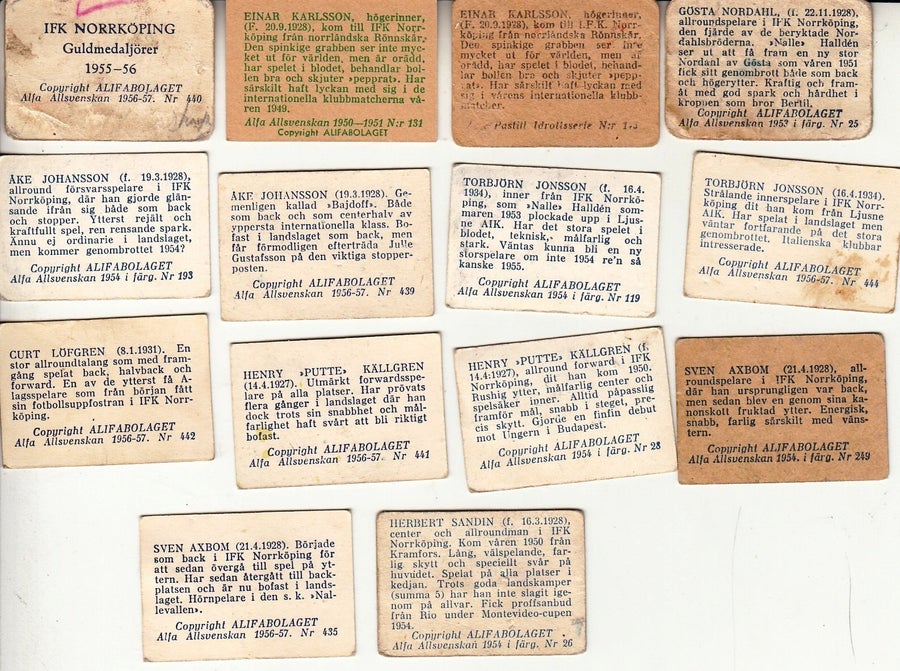 IFK NORRKÖPING
Guldmedaljörer
1955-56
Copyright ALIFABOLAGET
Alfa Allsvenskan 1956-57. Nr 440
EINAR KARLSSON, högerinner,
(F. 20.9.1928), kom till IFK Norr-
köping från norrländska Rönnskär.
Den spinkige grabben ser inte myc-
ket ut för världen, men är orädd,
har spelet i blodet, behandlar bol-
len bra och skjuter »pepprat». Har
särskilt haft lyckan med sig i de
internationella klubbmatcherna vå-
ren 1949.
Alfa Allsvenskan 1950—1951 N:r 131
Copyright ALIFABOLAGET
EINAR KARLSSON, högerinner,
(F. 20.9.1928), kom till I.F.K. Norr-
köping från norrländska Rönnskär.
Den spinkige grabben ser inte
mycket ut för världen, men är
orädd, har spelet i blodet, behand-
lar bollen bra och skjuter »pepp-
rat». Har särskilt haft lyckan med
sig i vårens internationella klubb-
matcher.
Pastill Idrottsserie N:r
GÖSTA NORDAHL, (f. 22.11.1928),
allroundspelare i IFK Norrköping,
den fjärde av de beryktade Nor-
dahlsbröderna. »Nalle» Halldén
ser ut att få fram en ny stor
Nordahl av Gösta som våren 1951
fick sitt genombrott både som back
och högerytter. Kraftig och fram-
åt med god spark och hårdhet i
kroppen som bror Bertil.
Copyright ALIFABOLAGET
Alfa Allsvenskan 1953 i färg. Nr 25
ÅKE JOHANSSON (f. 19.3.1928),
allround försvarsspelare i IFK
Norrköping, där han gjorde glän-
sande ifrån sig både som back
och stopper. Ytterst rejält och
kraftfull spel, ren rensande spark.
Ännu ej ordinarie i landslaget,
men kommer genombrottet 1954?
Copyright ALIFABOLAGET
Alfa Allsvenskan 1954 i färg. Nr 193
ÅKE JOHANSSON (19.3.1928). Ge-
menligen kallad »Bajdoff». Både
som back och som centerhalv av
yppersta internationella klass. Bo-
fast i landslaget som back, men
får förmodligen efterträda Julle
Gustafsson på den viktiga stopper-
posten.
Copyright ALIFABOLAGET
Alfa Allsvenskan 1956-57. Nr 439
TORBJÖRN JONSSON (f. 16.4.
1934), inner från IFK Norrkö-
ping, som »Nalle» Halldén som-
maren 1953 plockade upp i Ljus-
ne AIK. Har det stora spelet i
blodet, teknisk, målfarlig och
stark. Väntas kunna bli en ny
storspelare om inte 1954 re'n så
kanske 1955.
Copyright ALIFABOLAGET
Alfa Allsvenskan 1954 i färg. Nr 119
TORBJÖRN JONSSON (16.4.1934).
Strålande innerspelare i IFK Norr-
köping dit han kom från Ljusne
AIK. Har spelat i landslaget men
väntar fortfarande på det stora
genombrottet. Italienska klubbar
intresserade.
Copyright ALIFABOLAGET
Alfa Allsvenskan 1956-57. Nr 444
CURT LÖFGREN (8.1.1931). En
stor allroundtalang som med fram-
gång spelat back, halvback och
forward. En av de ytterst få A-
lagsspelare som från början fått
sin fotbollsuppfostran i IFK Norr-
köping.
Copyright ALIFABOLAGET
Alfa Allsvenskan 1956-57. Nr 442
HENRY »PUTTE» KÄLLGREN
(14.4.1927). Utmärkt forwardsspe-
lare på alla platser. Har prövats
flera gånger i landslaget där han
dock trots sin snabbhet och mål-
farlighet haft svårt att bli riktigt
bofast.
Copyright ALIFABOLAGET
Alfa Allsvenskan 1956-57. Nr 441
HENRY »PUTTE» KÄLLGREN (f.
14.4.1927), allround forward i IFK
Norrköping, dit han kom 1950.
Rushig ytter, målfarlig center och
spelsäker inner. Alltid påpasslig
framför mål, snabb i steget, pre-
cis skytt. Gjorde en finfin debut
mot Ungern i Budapest.
Copyright ALIFABOLAGET
Alfa Allsvenskan 1954 i färg. Nr 28
SVEN AXBOM (21.4.1928), all-
roundspelare i IFK Norrköping,
där han ursprungligen var back,
men sedan blev en genom sina ka-
nonskott fruktad ytter. Energisk,
snabb, farlig särskilt med väns-
tern.
Copyright ALIFABOLAGET
Alfa Allsvenskan 1954. i färg. Nr 249
SVEN AXBOM (21.4.1928). Började
som back i IFK Norrköping för
att sedan övergå till spel på yt-
tern. Har sedan återgått till back-
platsen och är nu bofast i lands-
laget. Hörnpelare i den s. k. »Nal-
levallen».
Copyright ALIFABOLAGET
Alfa Allsvenskan 1956-57. Nr 435
HERBERT SANDIN (f. 16.3.1928),
center och allroundman i IFK
Norrköping. Kom våren 1950 från
Kramfors. Lång, välspelande, far-
lig skytt och speciellt svår på
huvudet. Spelat på alla platser i
kedjan. Trots goda landskamper
(summa 5) har han inte slagit ige-
nom på allvar. Fick proffsanbud
från Rio under Montevideo-cupen
1954.
Copyright ALIFABOLAGET
Alfa Allsvenskan 1954 i färg. Nr 26